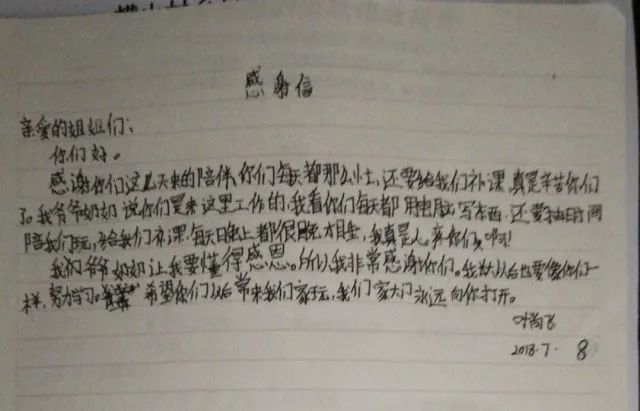 感谢信
亲爱的姐姐们:
你们好。
感谢你们这几天来的陪伴,你们每天都那么忙,还要给我们补课,真是辛苦你们
了。我爷爷奶奶说你们是来这里工作的,我看你们每天都用电脑写东西,还要抽时间
陪我们玩,给我们补课,每天晚上都很晚才睡,我真是心疼你们啊!
我们爷爷奶奶让我要懂得感恩。所以我非常感谢你们。我以后也要像你们一
样,努力学习。希望你们以后常来我们家玩,我们家大门永远向你打开。
2018.7.8